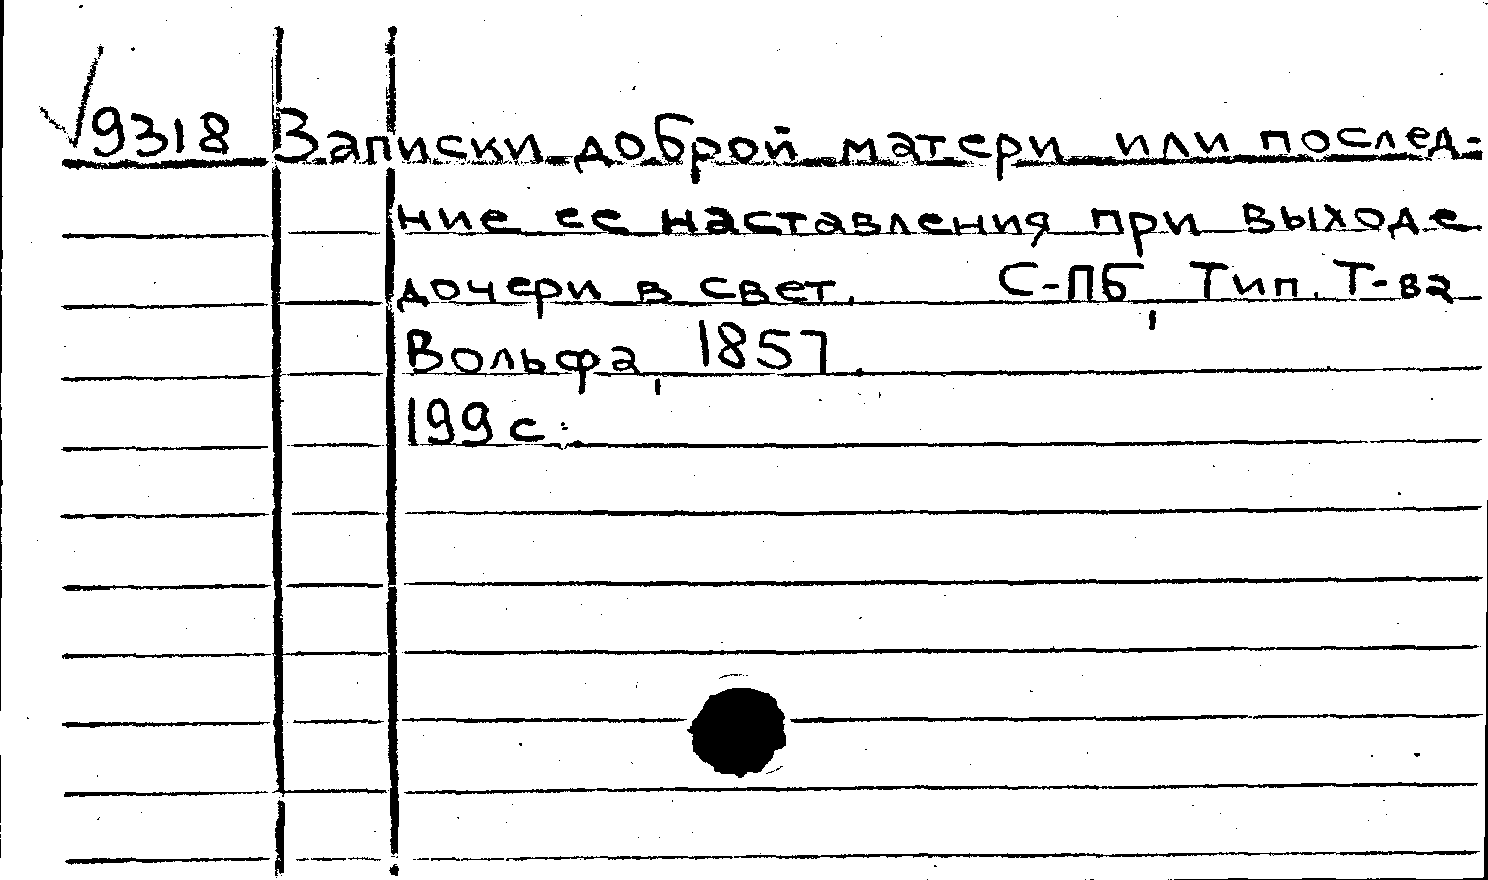 √9318 Записки доброй матери или послед-
ние ее наставления при выходе
дочери в свет. С-ПБ, Тип. Т-ва
Вольфа, 1857.
199 с.